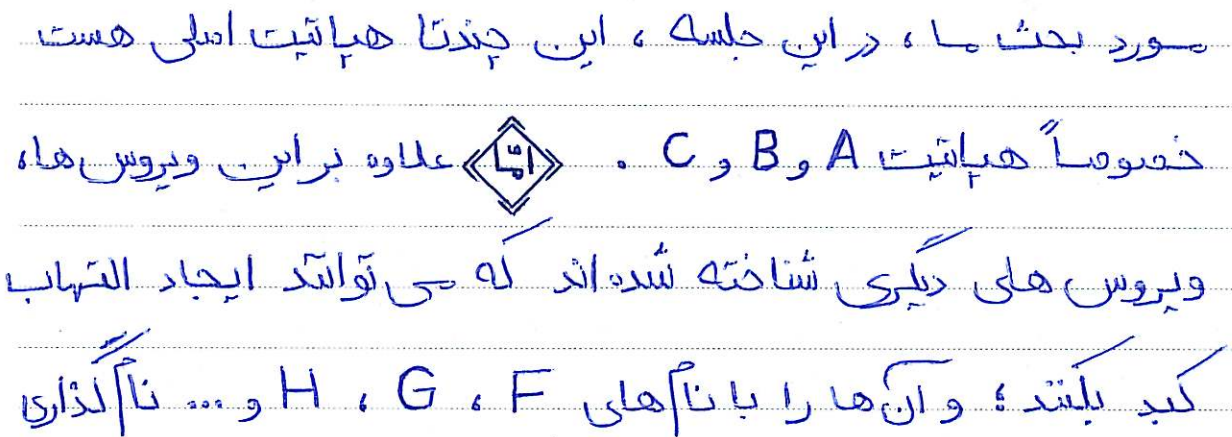 مورد بحث ما ، در این جلسه ، این چندتا هپاتیت اصلی هست
خصوصاً هپاتیت A و B و C . امّا علاوه بر این ویروس ها،
ویروس های دیگری شناخته شده اند که می توانند ایجاد التهاب
کبد بکنند ؛ و آن ها را با نام های F ، G ، H و ... نام گذاری